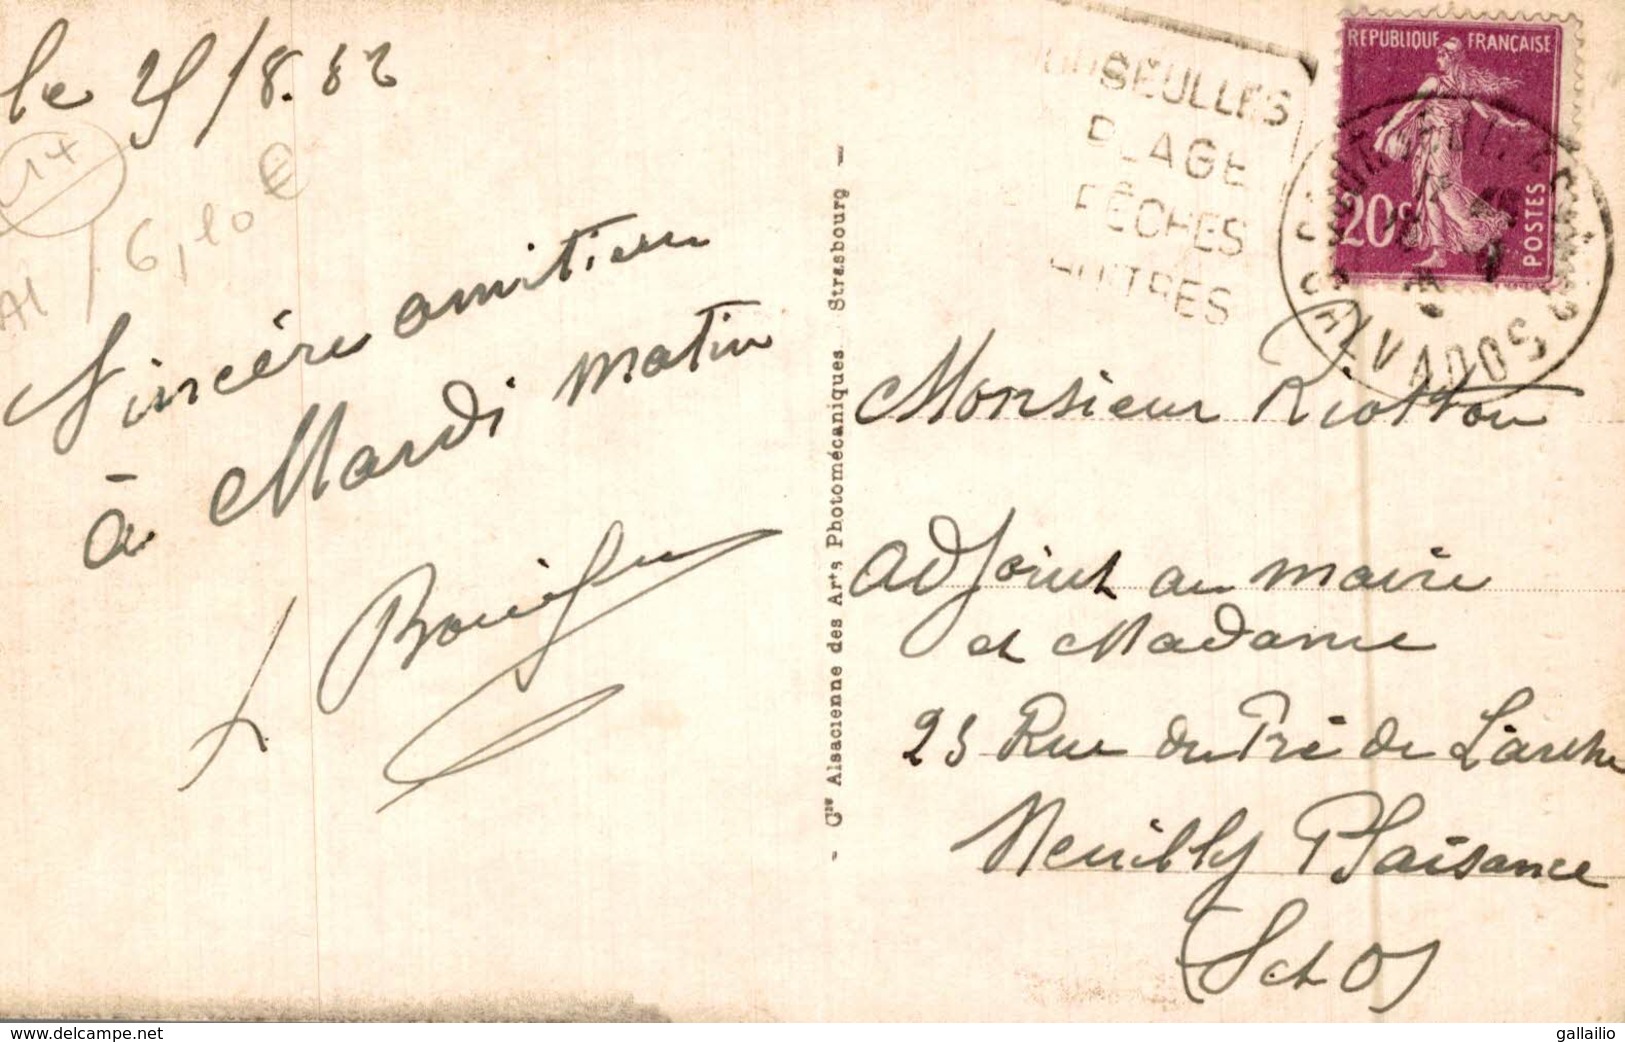 le 25/8.32
14
6,10€
A1
Sincères amitiés
à Mardi matin
SEULLES
PLAGE
PÊCHES
HUITRES
REPUBLIQUE FRANÇAISE
20c
POSTES
CALVADOS
- Cie Alsacienne des Arts Photomécaniques Strasbourg -
Monsieur Riotton
Adjoint au maire
et Madame
25 Rue du Pré de L'arche
Neuilly Plaisance
(S et O)
www.delcampe.net
gallailio